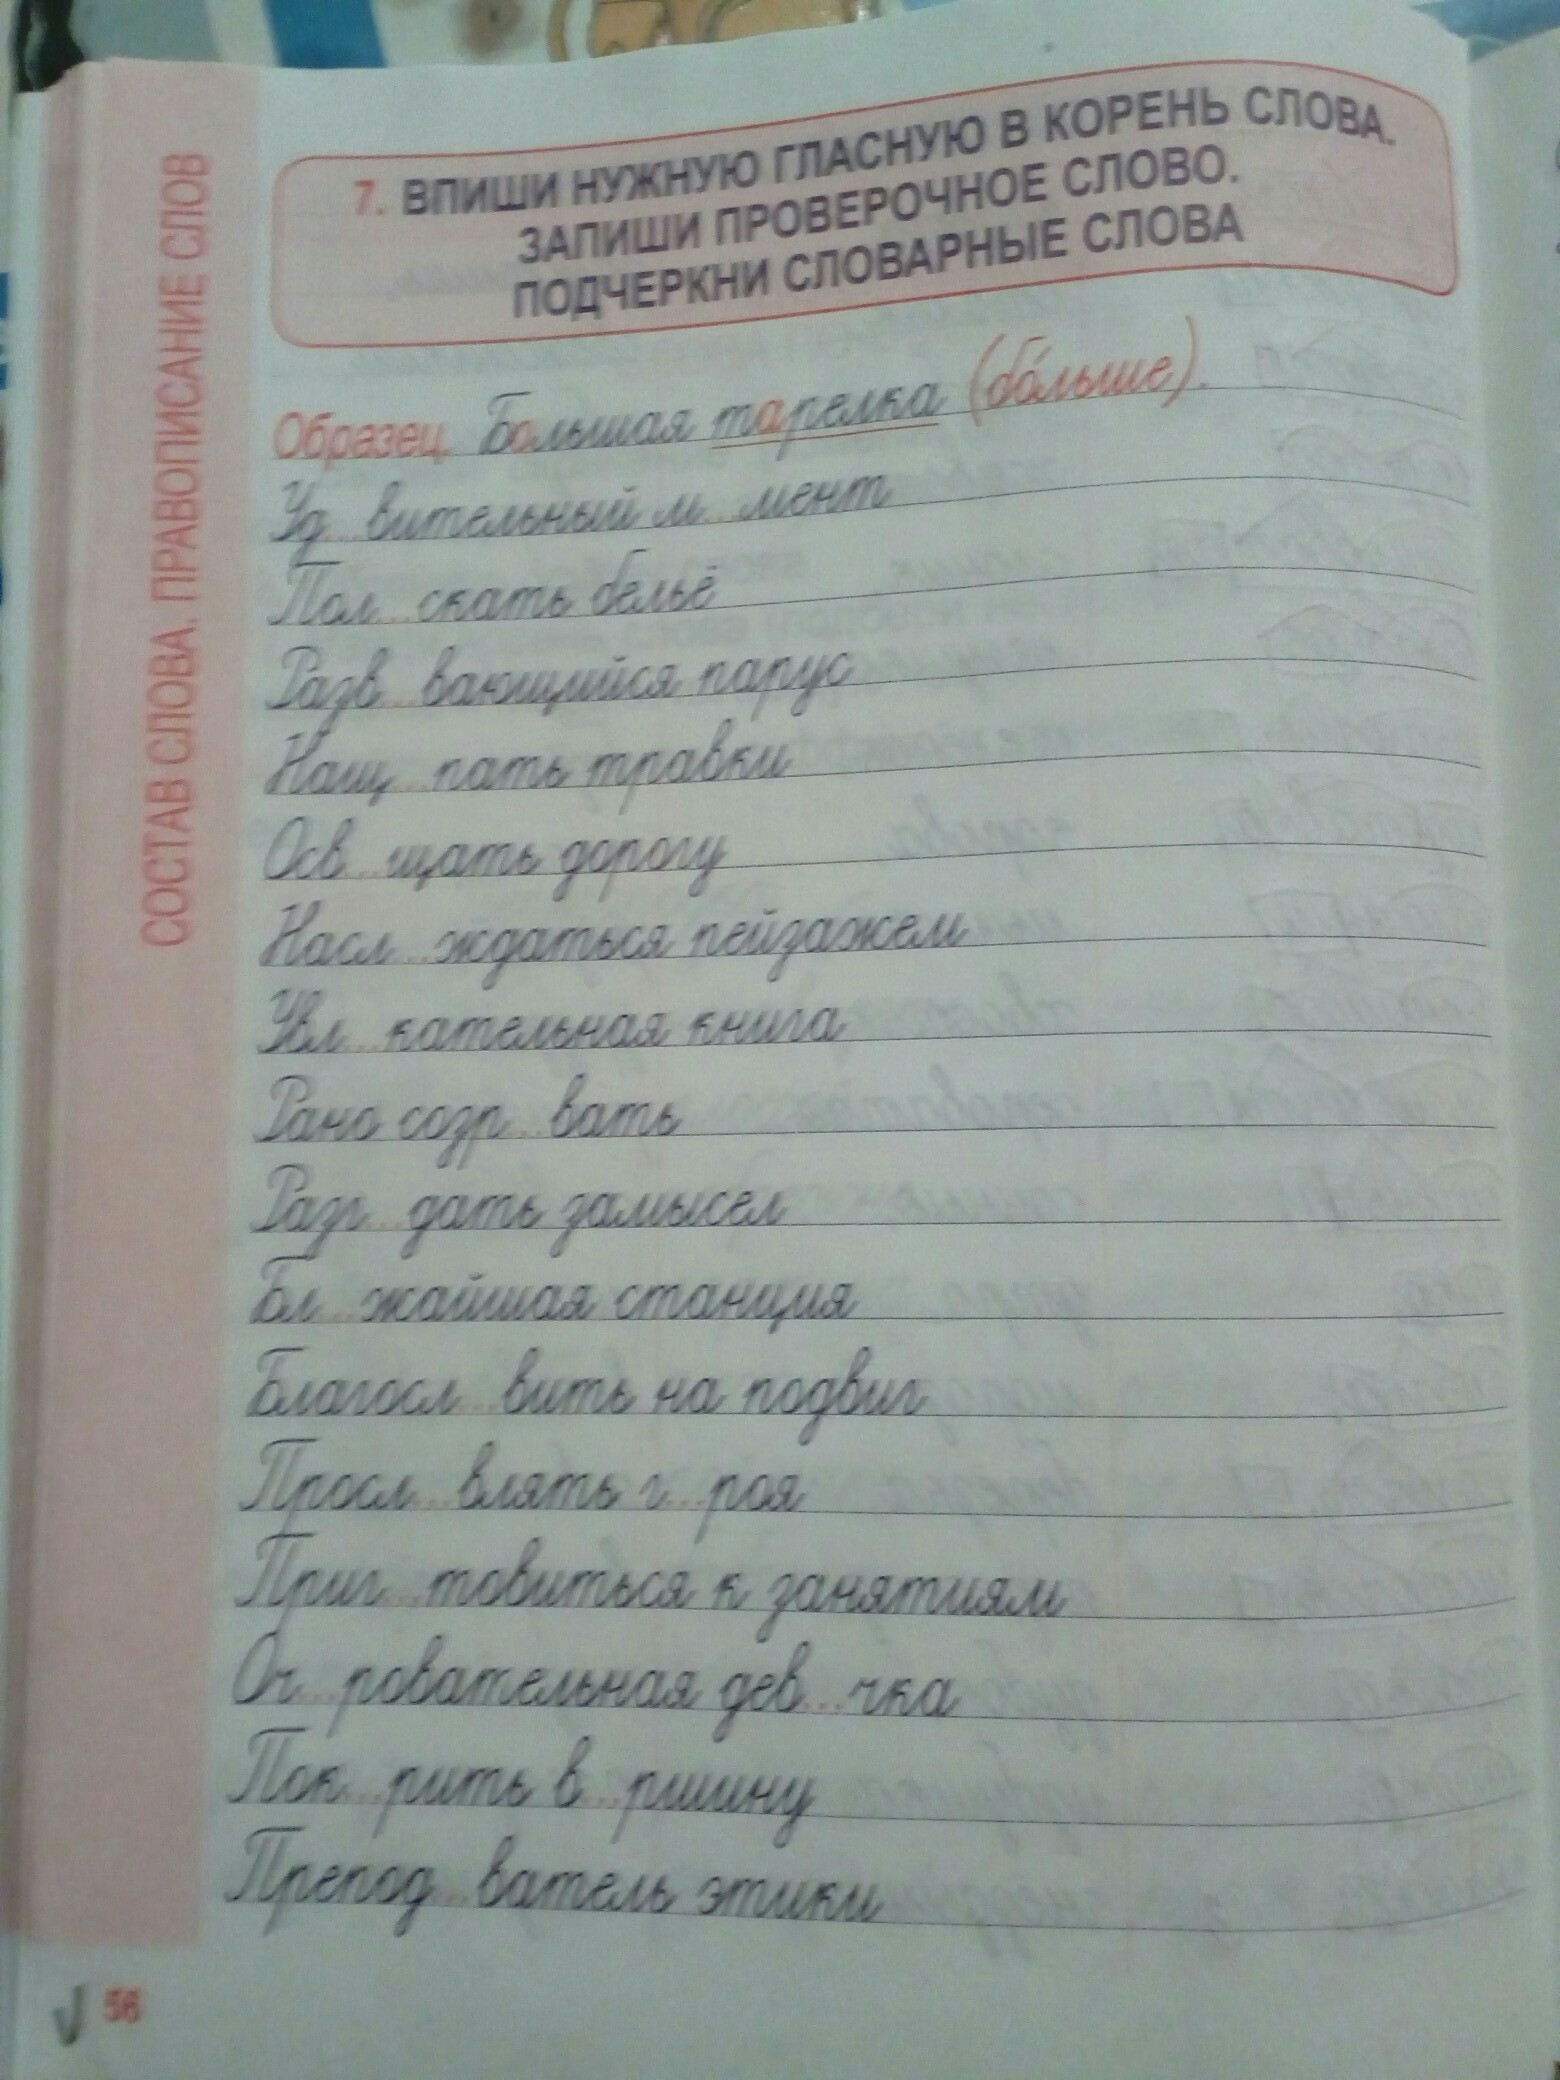 СОСТАВ СЛОВА. ПРАВОПИСАНИЕ СЛОВ
7. ВПИШИ НУЖНУЮ ГЛАСНУЮ В КОРЕНЬ СЛОВА.
ЗАПИШИ ПРОВЕРОЧНОЕ СЛОВО.
ПОДЧЕРКНИ СЛОВАРНЫЕ СЛОВА
Образец. Большая тарелка (бо́льше).
Уд...вительный м...мент
Пол...скать бельё
Разв...вающийся парус
Нащ...пать травки
Осв...щать дорогу
Насл...ждаться пейзажем
Увл...кательная книга
Рано созр...вать
Разг...дать замысел
Бл...жайшая станция
Благосл...вить на подвиг
Просл...влять г...роя
Приг...товиться к занятиям
Оч...ровательная дев...чка
Пок...рить в...ршину
Препод...ватель этики
56